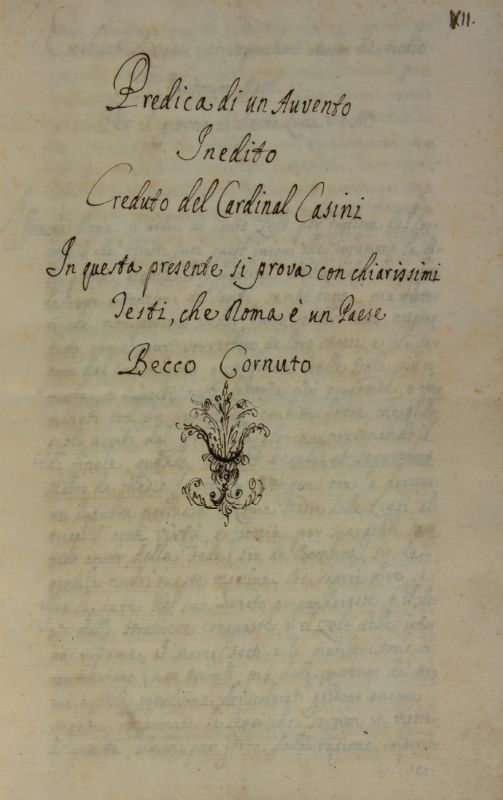 XII.
Predica di un Auvento
Inedito
Creduto del Cardinal Casini
In questa presente si prova con chiarissimi
Testi, che Roma è un Paese
Becco Cornuto